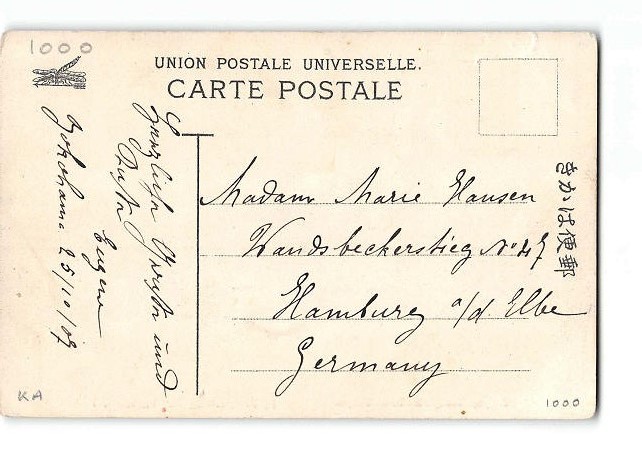 1000
UNION POSTALE UNIVERSELLE.
CARTE POSTALE
Herzliche Grüße und
Eugen
Yokohama 25/10/09
Madam Marie Hansen
Wandsbeckerstieg No 47
Hamburg a/d Elbe
Germany
きかは便郵
KA
1000